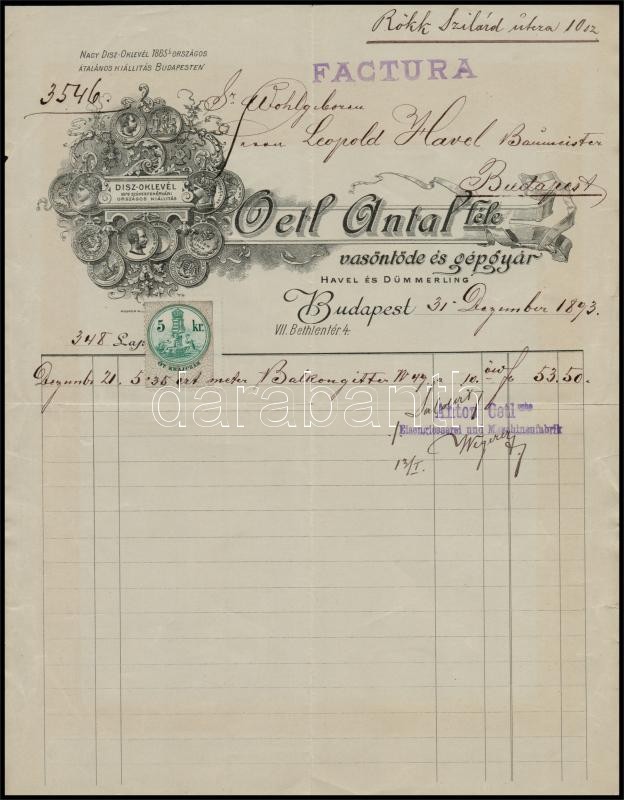 Rökk Szilárd útcza 10 sz
Nagy Disz-Oklevél 1885 i. országos
átalános kiállitás Budapesten
FACTURA
3546.
Sr Wohlgeboren
Herrn Leopold Havel Baumeister
Budapest
DISZ-OKLEVÉL
1879 SZÉKESFEHÉRVÁRI
ORSZÁGOS KIÁLLITÁS
Oetl Antal féle
vasöntöde és gépgyár
Havel és Dümmerling
Budapest 31 Dezember 1893.
VII. Bethlentér 4.
348 Lap.
5 kr.
ÖT KRAJCZÁR
Dezemb 21. 5.35 crt meter Balkongitter N 42 10. öw f 53.50.
darabanth.com
Saldirt
Anton Oetl'sche
Eisengiesserei und Maschinenfabrik
13/I.